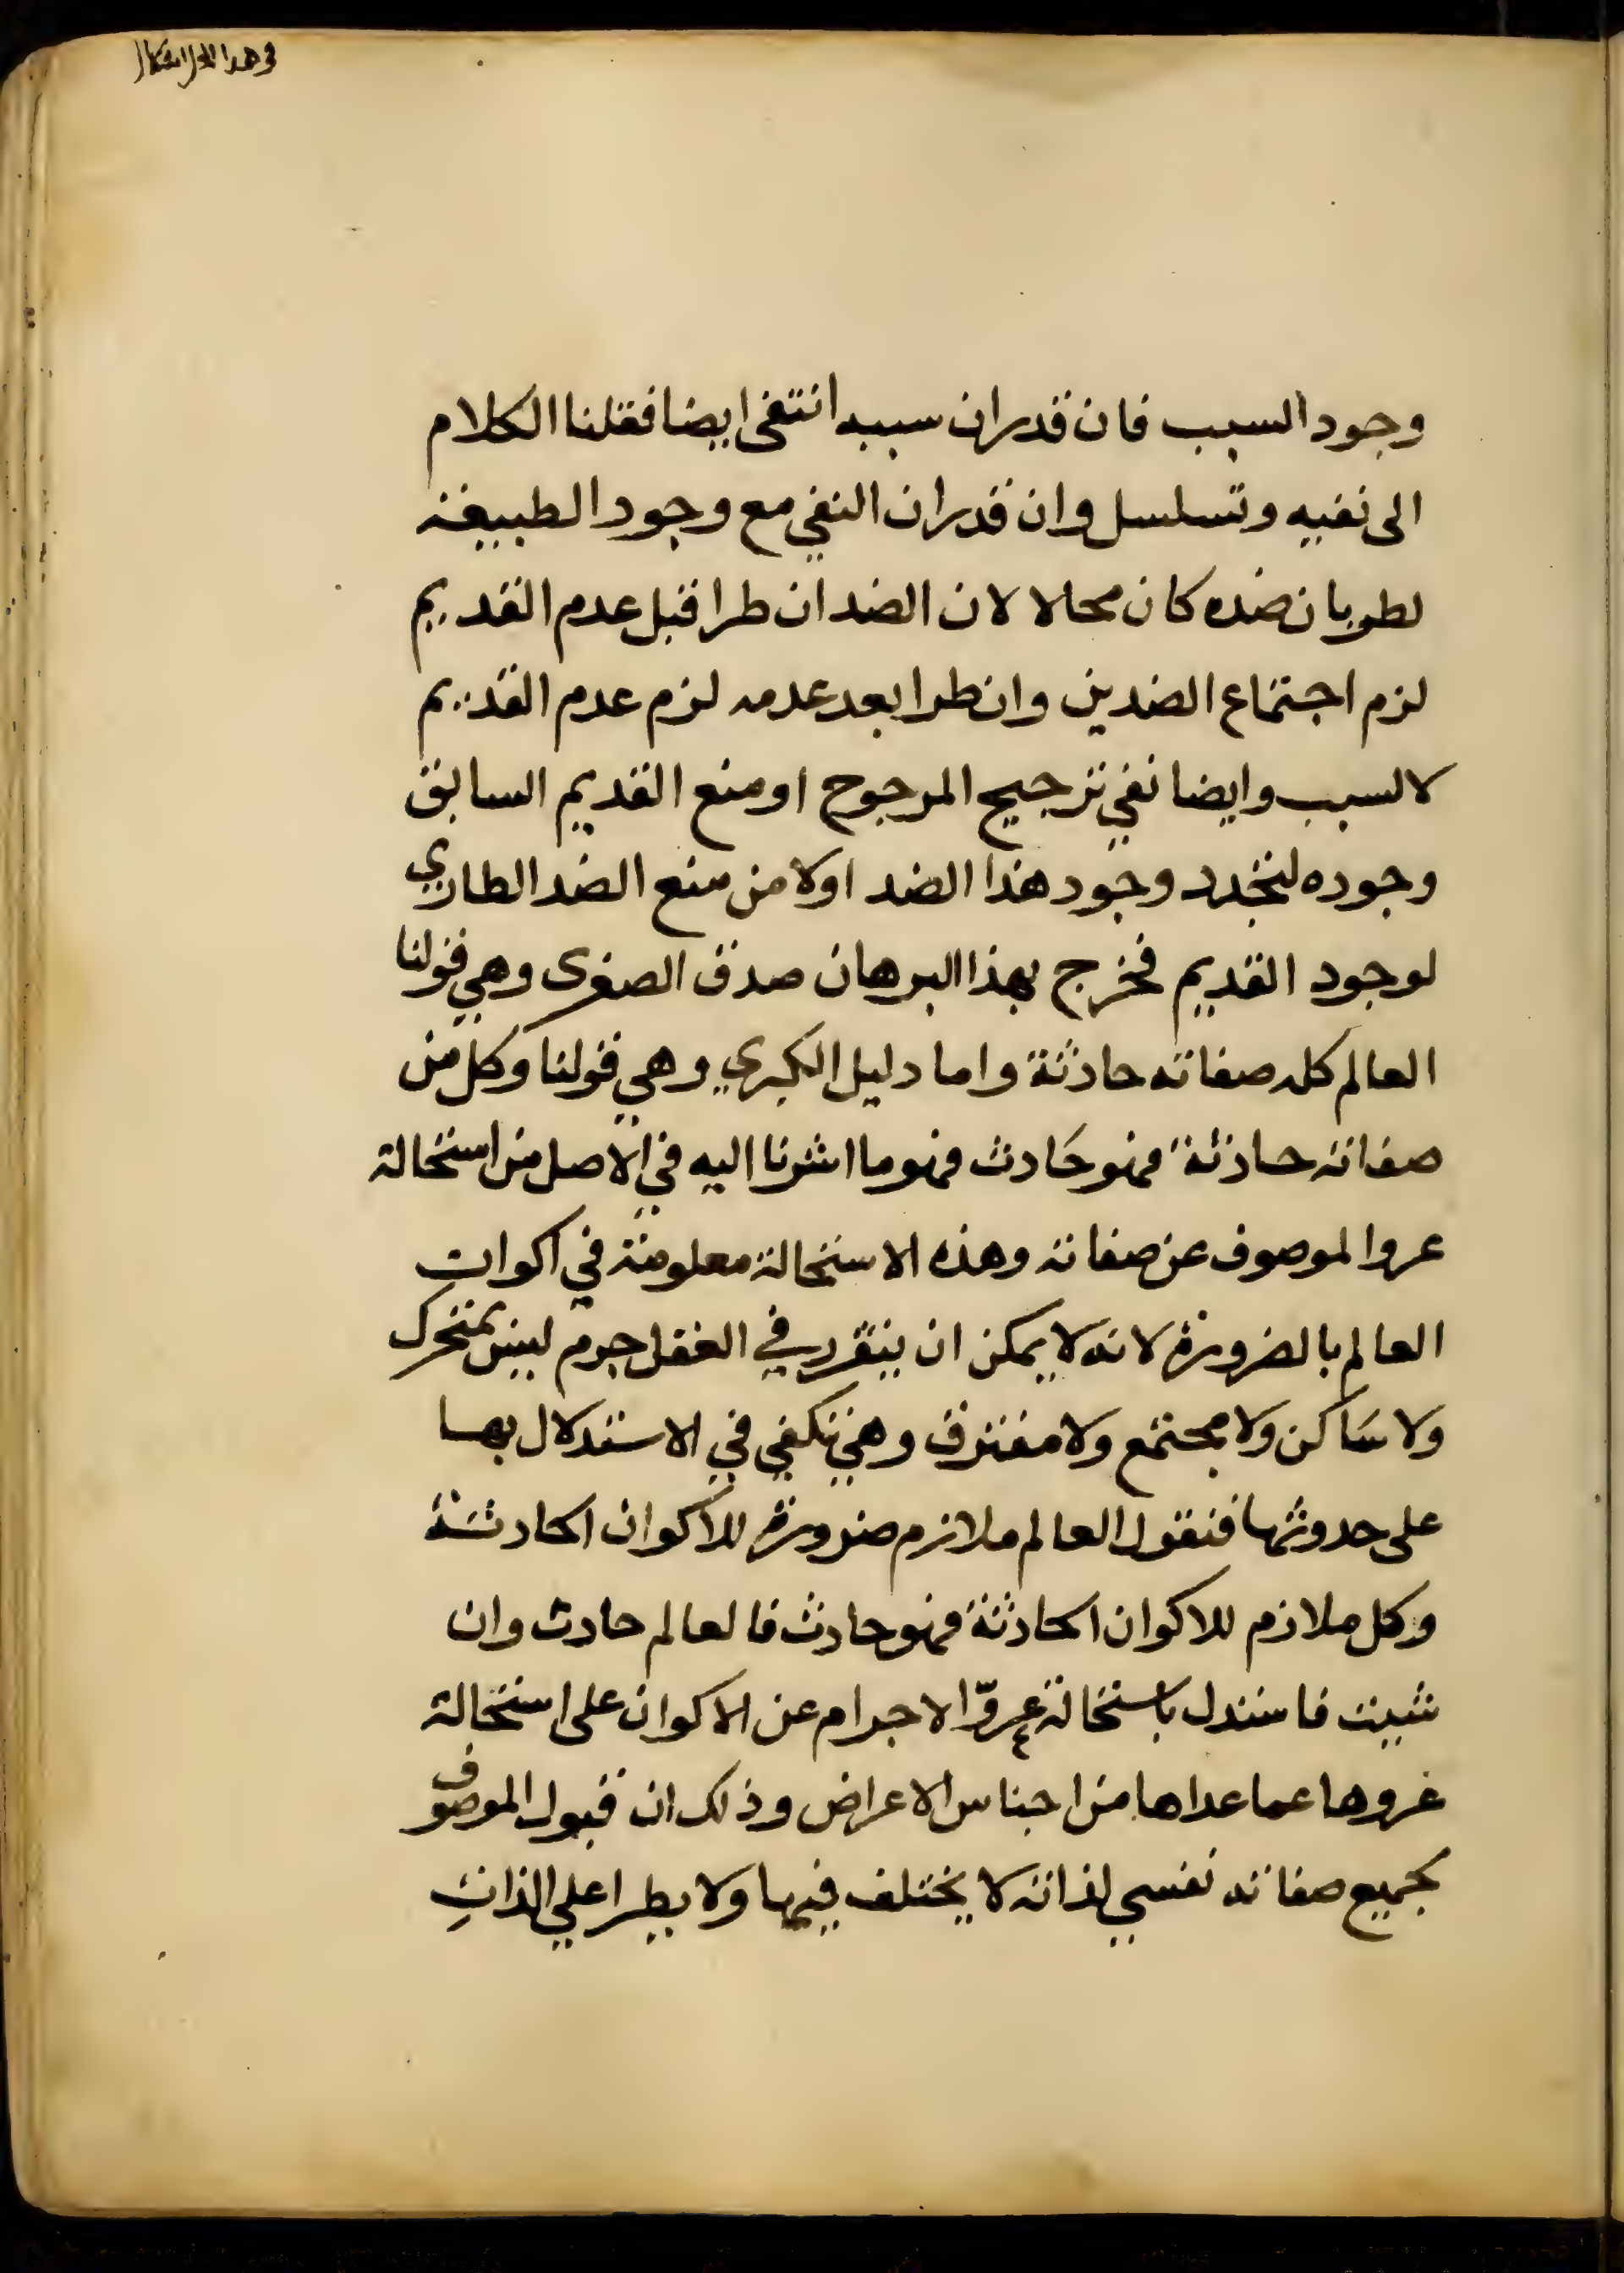 في هذا المحل اشكال
وجود السبب فان قدر ان سببه انتفى ايضا فقلنا الكلام
الى نفيه وتسلسل وان قدر ان النفي مع وجود الطبيعة
لطريان ضده كان محالا لان الضد ان طرا قبل عدم القديم
لزم اجتماع الضدين وان طرا بعد عدمه لزم عدم القديم
لا لسبب وايضا نفي ترجيح المرجوح او منع القديم السابق
وجوده لتجدد وجود هذا الضد اولا من منع الضد الطاري
لوجود القديم فخرج بهذا البرهان صدق الصغرى وهي قولنا
العالم كله صفاته حادثة واما دليل الكبري وهي قولنا وكل من
صفاته حادثة فهو حادث فهو ما اشرنا اليه في الاصل من استحالة
عروا لموصوف عن صفاته وهذه الاستحالة معلومة في اكوان
العالم بالضرورة لانه لا يمكن ان يتقرر في العقل جرم ليس بمتحرك
ولا ساكن ولا مجتمع ولا مفترق وهي تكفي في الاستدلال بها
على حدوثها فنقول العالم ملازم ضرورة للاكوان الحادثة
وكل ملازم للاكوان الحادثة فهو حادث فالعالم حادث وان
شيت فاستدل باستحالة عروّ الاجرام عن الاكوان على استحالة
عروها عما عداها من اجناس الاعراض وذلك ان قبول الموصوف
لجميع صفاته نفسي لذاته لا يختلف فيها ولا يطرا علي الذات